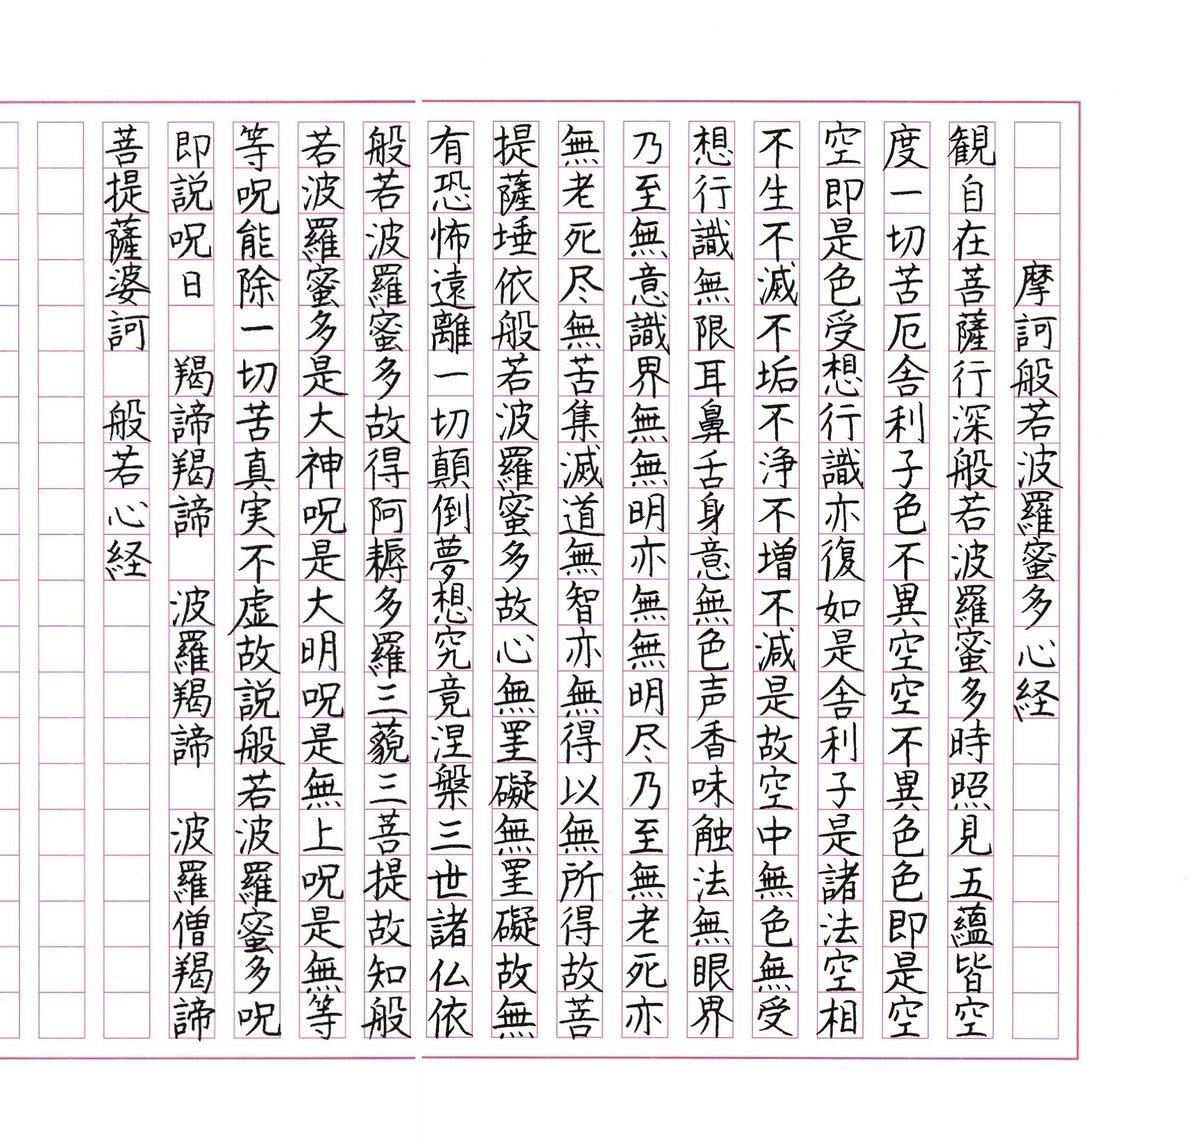 摩訶般若波羅蜜多心経
観自在菩薩行深般若波羅蜜多時照見五蘊皆空
度一切苦厄舎利子色不異空空不異色色即是空
空即是色受想行識亦復如是舎利子是諸法空相
不生不滅不垢不浄不増不減是故空中無色無受
想行識無限耳鼻舌身意無色声香味触法無眼界
乃至無意識界無無明亦無無明尽乃至無老死亦
無老死尽無苦集滅道無智亦無得以無所得故菩
提薩埵依般若波羅蜜多故心無罣礙無罣礙故無
有恐怖遠離一切顛倒夢想究竟涅槃三世諸仏依
般若波羅蜜多故得阿耨多羅三藐三菩提故知般
若波羅蜜多是大神呪是大明呪是無上呪是無等
等呪能除一切苦真実不虚故説般若波羅蜜多呪
即説呪日　羯諦羯諦　波羅羯諦　波羅僧羯諦
菩提薩婆訶　般若心経